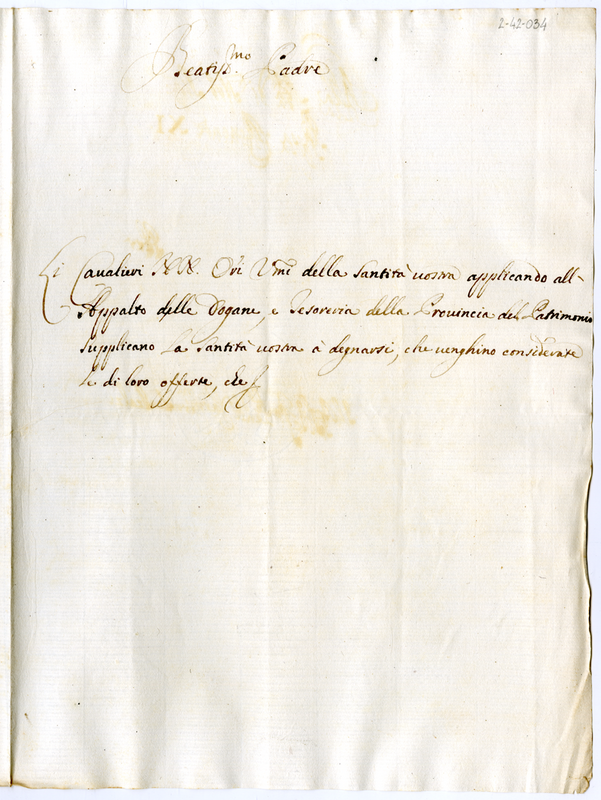 2-42-034
Beatiss.mo Padre
Li Cavalieri NN. Ori Umi della Santità vostra applicando all-
Appalto delle Dogane, e Tesoreria della Provincia del Patrimonio
supplicano la Santità vostra à degnarsi, che venghino considerate
le di loro offerte, che